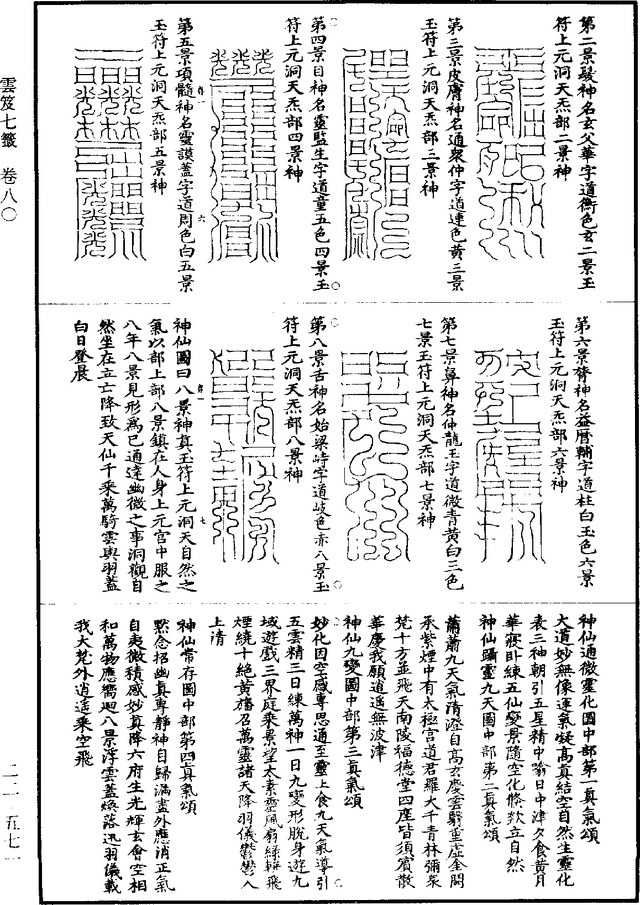 第二景髮神名玄父華字道衡色玄二景玉
符上元洞天炁部二景神
第三景皮膚神名通眾仲字道連色黃三景
玉符上元洞天炁部三景神
第四景目神名靈監生字道童五色四景玉
符上元洞天炁部四景神
第五景項髓神名靈謨蓋字道周色白五景
玉符上元洞天炁部五景神
第六景膂神名益曆輔字道柱白玉色六景
玉符上元洞天炁部六景神
第七景鼻神名仲龍玉字道微青黃白三色
七景玉符上元洞天炁部七景神
第八景舌神名始梁峙字道岐色赤八景玉
符上元洞天炁部八景神
神仙圖曰八景神真玉符上元洞天自然之
氣以部上部八景鎮在人身上元宮中服之
八年八景見形為已通達幽微之事洞觀自
然坐在立亡降致天仙千乘萬騎雲輿羽蓋
白日登晨
神仙通微靈化圖中部第一真氣頌
大道妙無像運氣凝高真結空自然生靈化
表三神朝引五星精中飡日中津夕食黃月
華寢臥練五仙變景隨空化倏欻立自然
神仙躡靈九天圖中部第二真氣頌
蕭蕭九天氣清澄自高玄慶雲翳重虛金闕
承紫煙中有太極宮道君羅大千青林彌梵
梵十方並飛天南陵福德堂四座皆須賓散
華慶我願逍遙無波津
神仙九變圖中部第三真氣頌
妙化因空感專思通至靈上食九天氣導引
五雲精三日練萬神一日九變形脫身遊九
域遊戲三界庭乘景登太素靈風扇綠軿飛
煙繞十絕黃旛召萬靈諸天降羽儀鬱鬱入
上清
神仙常存圖中部第四真氣頌
默念招幽真專靜神自歸滿盡外應消正氣
自夷微積感妙真降六府生光輝玄會空相
和萬物應嚮迴八景浮雲蓋煥落迅羽儀載
我大梵外逍遙乘空飛
雲笈七籤　卷八〇
二二—五七一